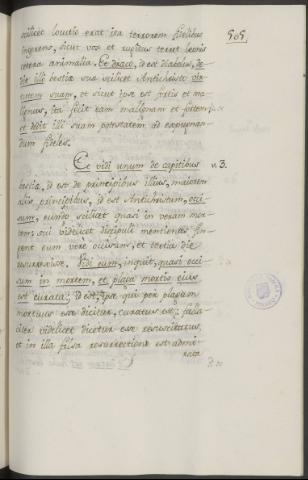 505
scilicet loquutio erat ita terrorem fidelibus
ingerens, sicut vox et rugitus terret leonis
cetera animalia. Et draco, id est diabolus, de-
dit illi bestiæ suæ scilicet Antichristo vir-
tutem suam, et sicut ipse est fortis et ma-
lignus, ita fecit eam malignam et fortem
et dedit illi suam potestatem ad expugnan-
dum fideles.
Et vidi unum de capitibus v. 3.
bestiæ, id est de principibus illius, maiorem
aliis principibus, id est Antichristum, occi-
sum, eundo scilicet quasi in veram mor-
tem, cui videlicet discipuli mentientes fin-
gent eum vere occisum, et tertia die
resurrexisse. Vidi eum, inquit, quasi occi-
sum in mortem, et plaga mortis eius
est curata; id est, ipse qui per plagam
mortuus esse dicitur, curatus est; falla-
citer videlicet dicetur esse resuscitatus,
et in illa falsa resurrectione est admi-
rata